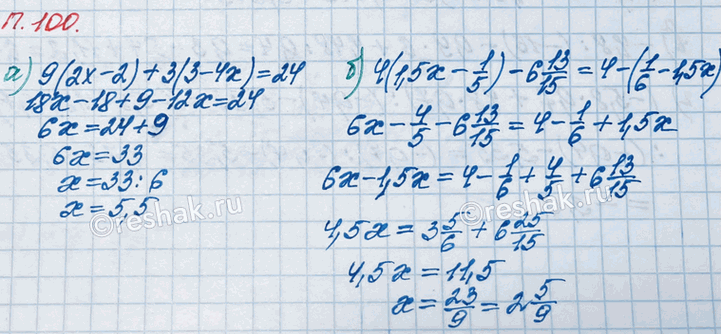 П. 100.
а) 9(2x-2)+3(3-4x)=24
18x-18+9-12x=24
6x=24+9
6x=33
x=33:6
x=5,5
б) 4(1,5x - 1/5) - 6 13/15 = 4 - (1/6 - 1,5x)
6x - 4/5 - 6 13/15 = 4 - 1/6 + 1,5x
6x - 1,5x = 4 - 1/6 + 4/5 + 6 13/15
4,5x = 3 5/6 + 6 25/15
4,5x = 11,5
x = 23/9 = 2 5/9
©reshak.ru
©reshak.ru